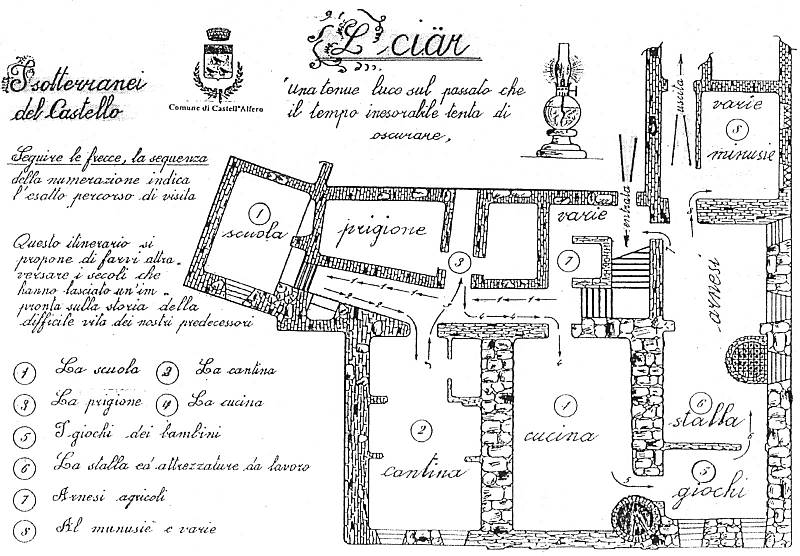 L ciär
I sotterranei
del Castello
Comune di Castell'Alfero
"una tenue luce sul passato che
il tempo inesorabile tenta di
oscurare,
Seguire le frecce, la sequenza
della numerazione indica
l'esatto percorso di visita
Questo itinerario si
propone di farvi attra-
versare i secoli che
hanno lasciato un'im-
pronta sulla storia della
difficile vita dei nostri predecessori
1 La scuola 2 La cantina
3 La prigione 4 La cucina
5 I giochi dei bambini
6 La stalla ed attrezzature da lavoro
7 Arnesi agricoli
8 Al munusiè e varie
1
scuola
prigione
3
varie
7
entrata
uscita
varie
8
minusie
arnesi
6
stalla
5
giochi
1
cucina
2
cantina